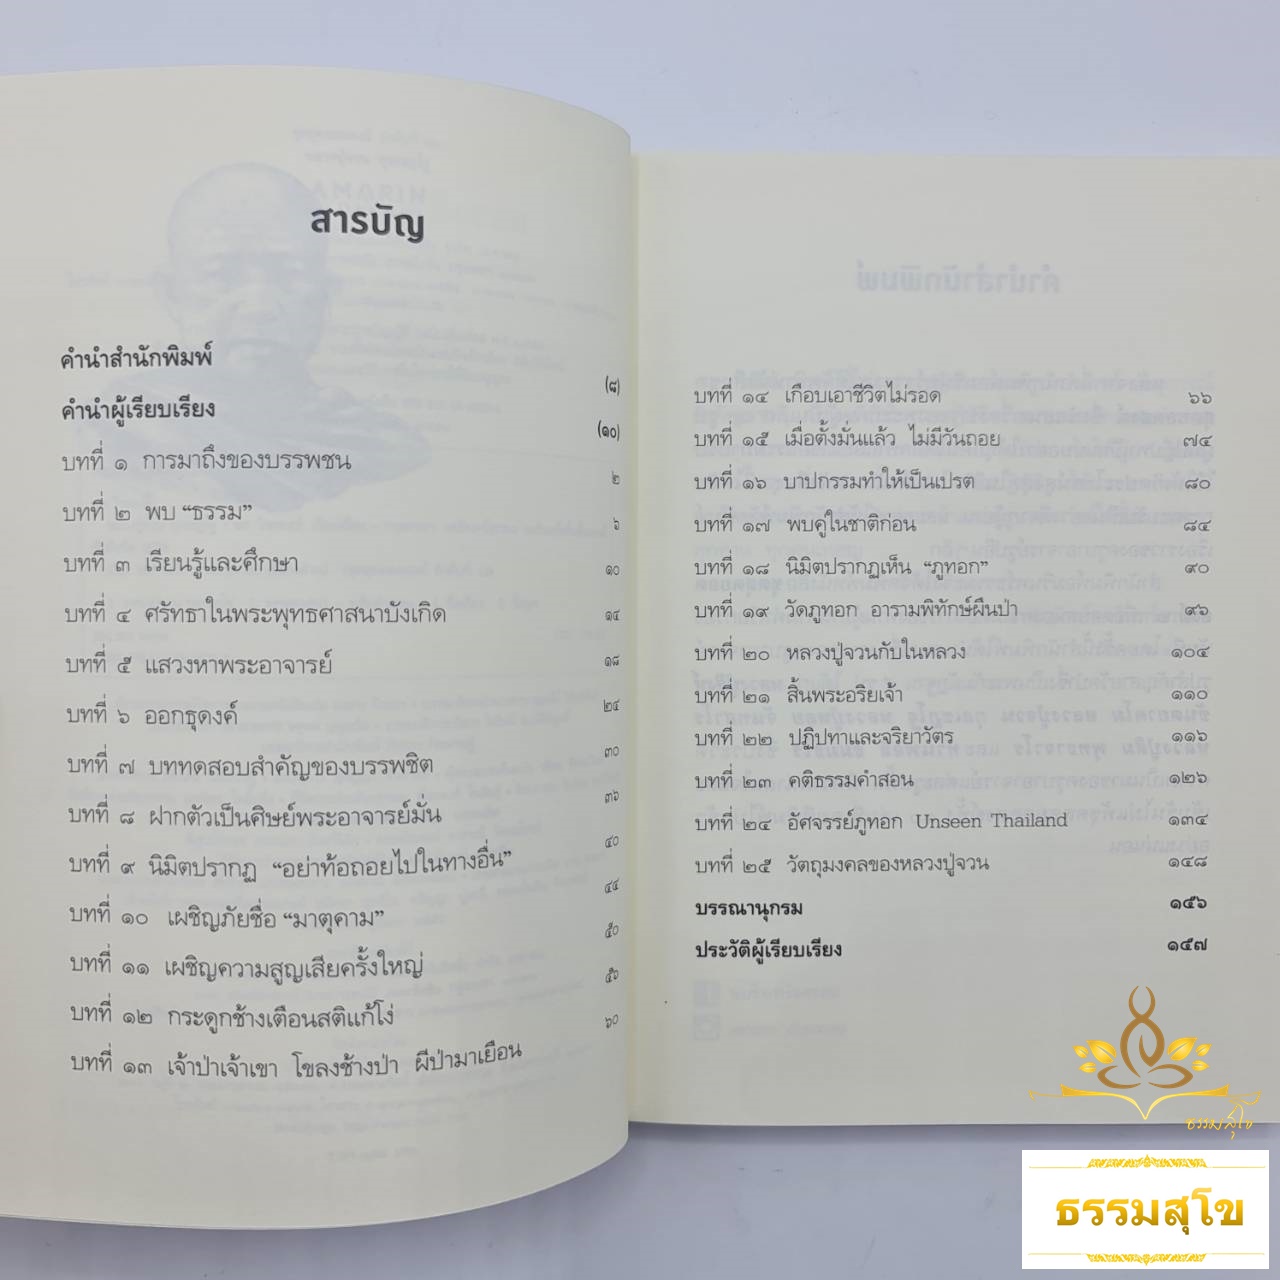 สารบัญ
คำนำสำนักพิมพ์ (๘)
คำนำผู้เรียบเรียง (๑๐)
บทที่ ๑ การมาถึงของบรรพชน ๒
บทที่ ๒ พบ “ธรรม” ๖
บทที่ ๓ เรียนรู้และศึกษา ๑๐
บทที่ ๔ ศรัทธาในพระพุทธศาสนาบังเกิด ๑๔
บทที่ ๕ แสวงหาพระอาจารย์ ๑๘
บทที่ ๖ ออกธุดงค์ ๒๔
บทที่ ๗ บททดสอบสำคัญของบรรพชิต ๓๐
บทที่ ๘ ฝากตัวเป็นศิษย์พระอาจารย์มั่น ๓๖
บทที่ ๙ นิมิตปรากฏ “อย่าท้อถอยไปในทางอื่น” ๔๐
บทที่ ๑๐ เผชิญภัยชื่อ “มาตุคาม” ๔๔
บทที่ ๑๑ เผชิญความสูญเสียครั้งใหญ่ ๕๐
บทที่ ๑๒ กระดูกช้างเตือนสติแก้โง่ ๕๖
บทที่ ๑๓ เจ้าป่าเจ้าเขา โขลงช้างป่า ผีป่ามาเยือน ๖๐
บทที่ ๑๔ เกือบเอาชีวิตไม่รอด ๖๖
บทที่ ๑๕ เมื่อตั้งมั่นแล้ว ไม่มีวันถอย ๗๔
บทที่ ๑๖ บาปกรรมทำให้เป็นเปรต ๘๐
บทที่ ๑๗ พบคู่ในชาติก่อน ๘๔
บทที่ ๑๘ นิมิตปรากฏเห็น “ภูทอก” ๙๐
บทที่ ๑๙ วัดภูทอก อารามพิทักษ์ผืนป่า ๙๖
บทที่ ๒๐ หลวงปู่จวนกับในหลวง ๑๐๔
บทที่ ๒๑ สิ้นพระอริยเจ้า ๑๑๐
บทที่ ๒๒ ปฏิปทาและจริยาวัตร ๑๑๖
บทที่ ๒๓ คติธรรมคำสอน ๑๒๖
บทที่ ๒๔ อัศจรรย์ภูทอก Unseen Thailand ๑๓๔
บทที่ ๒๕ วัตถุมงคลของหลวงปู่จวน ๑๔๘
บรรณานุกรม ๑๕๖
ประวัติผู้เรียบเรียง ๑๕๗
ธรรมสุโข
ธรรมสุโข